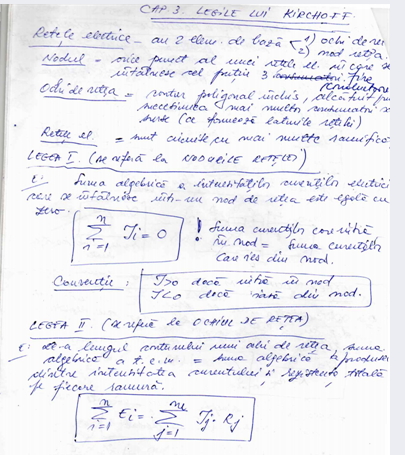 CAP 3. LEGILE LUI KIRCHOFF.
Rețele electrice – au 2 elem. de bază 1) ochi de re
2) nod rețea.
Nodul = orice punct al unei rețele el. în care se
întâlnesc cel puțin 3 fire
conductoare
Ochi de rețea = contur poligonal închis, alcătuit prin
succesiunea mai multor consumatori și
surse (ce formează laturile rețelei)
Rețele el. = sunt circuite cu mai multe ramificații
LEGEA I. (se referă la NODURILE REȚELEI)
E: Suma algebrică a intensităților curenților electrici
care se întâlnesc într-un nod de rețea este egală cu
zero.
n
∑ Ii = 0
i=1
! Suma curenților care intră
în nod = suma curenților
care ies din nod.
Convenție: I>0 dacă intră în nod
I<0 dacă iasă din nod.
LEGEA II. (se referă la OCHIUL DE REȚEA)
E: De-a lungul conturului unui ochi de rețea, suma
algebrică a t.e.m. = suma algebrică a produselor
dintre intensitatea curentului și rezistența totală
pe fiecare ramură.
n m
∑ Ei = ∑ Ij · Rj
i=1 j=1